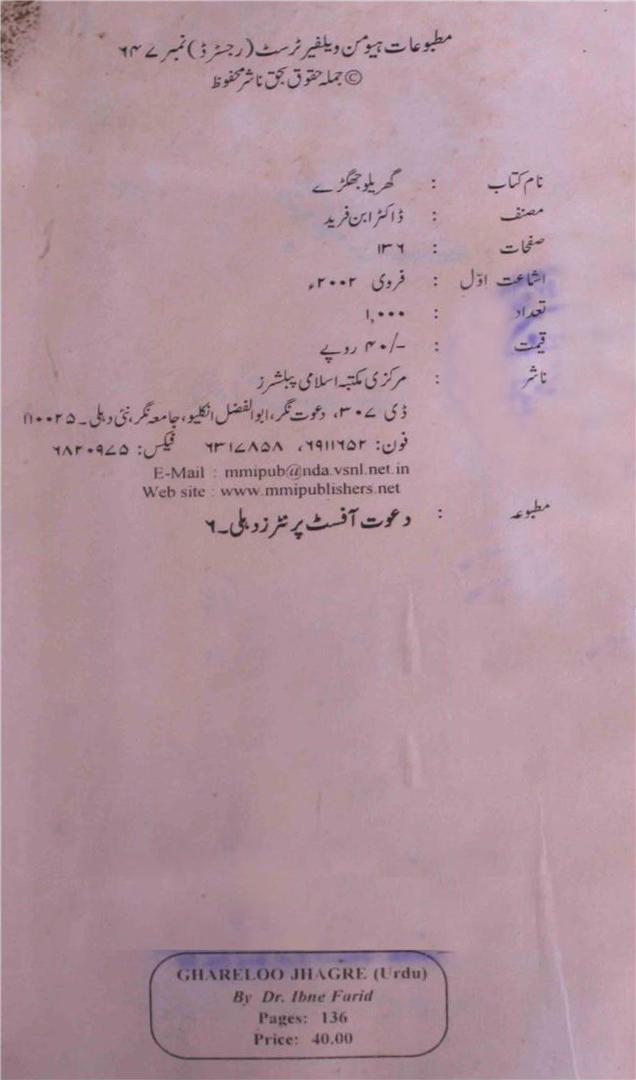 مطبوعات ہیومن ویلفیر ٹرسٹ (رجسٹرڈ) نمبر ۶۴۷
© جملہ حقوق بحق ناشر محفوظ
نام کتاب : گھریلو جھگڑے
مصنف : ڈاکٹر ابن فرید
صفحات : ۱۳۶
اشاعت اوّل : فروی ۲۰۰۲ء
تعداد : ۱,۰۰۰
قیمت : ۴۰/- روپے
ناشر : مرکزی مکتبہ اسلامی پبلشرز
ڈی ۳۰۷، دعوت نگر، ابوالفضل انکلیو، جامعہ نگر، نئی دہلی۔۱۱۰۰۲۵
فون: ۶۹۱۱۶۵۲، ۶۳۱۷۸۵۸ فیکس: ۶۸۲۰۹۷۵
E-Mail : mmipub@nda.vsnl.net.in
Web site : www.mmipublishers.net
مطبوعہ : دعوت آفسٹ پرنٹرز دہلی۔۶
GHARELOO JHAGRE (Urdu)
By Dr. Ibne Farid
Pages: 136
Price: 40.00